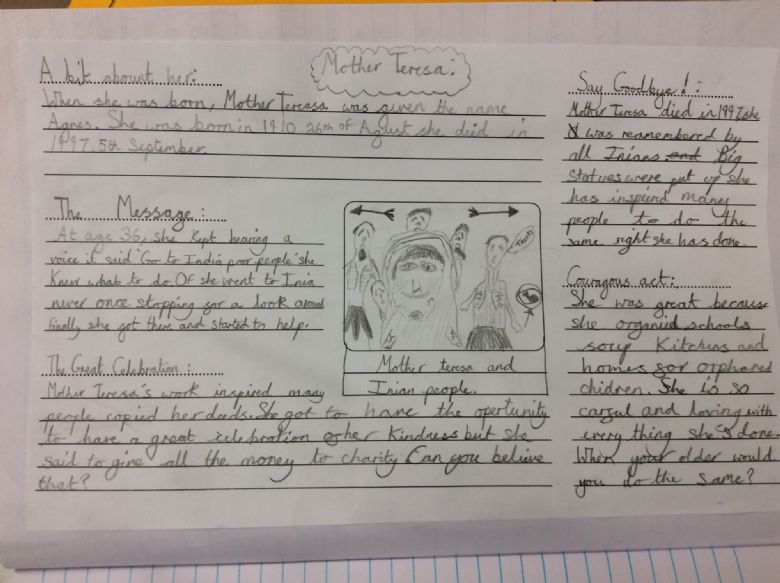 Mother Teresa:
A bit abount her:
When she was born, Mother Tereasa was given the name
Agnes. She was born in 1910 26th of Agust she died in
1997. 5th September.
The Message:
At age 36, she kept hearing a
voice it said 'Go to India poor people' she
knew what to do. Of she went to Inia
never once stopping for a look around
finally she got there and started to help.
Mother teresa and
Inian people.
The Great Celebration:
Mother Teresa's work inspired many
people copied her deeds. She got to have the opertunity
to have a great celebration of her kindness but she
said to give all the money to charity Can you believe
that?
Say Goodbye!:
Mother Teresa died in 1997 she
was reamembered by
all Inians and Big
statues were put up she
has inspierd maney
people to do the
same right she has done.
Couragous act:
She was great because
she organied schools
soup Kitchens and
homes for orphared
chidren. She is so
carful and loving with
every thing she's done.
When your older would
you do the same?